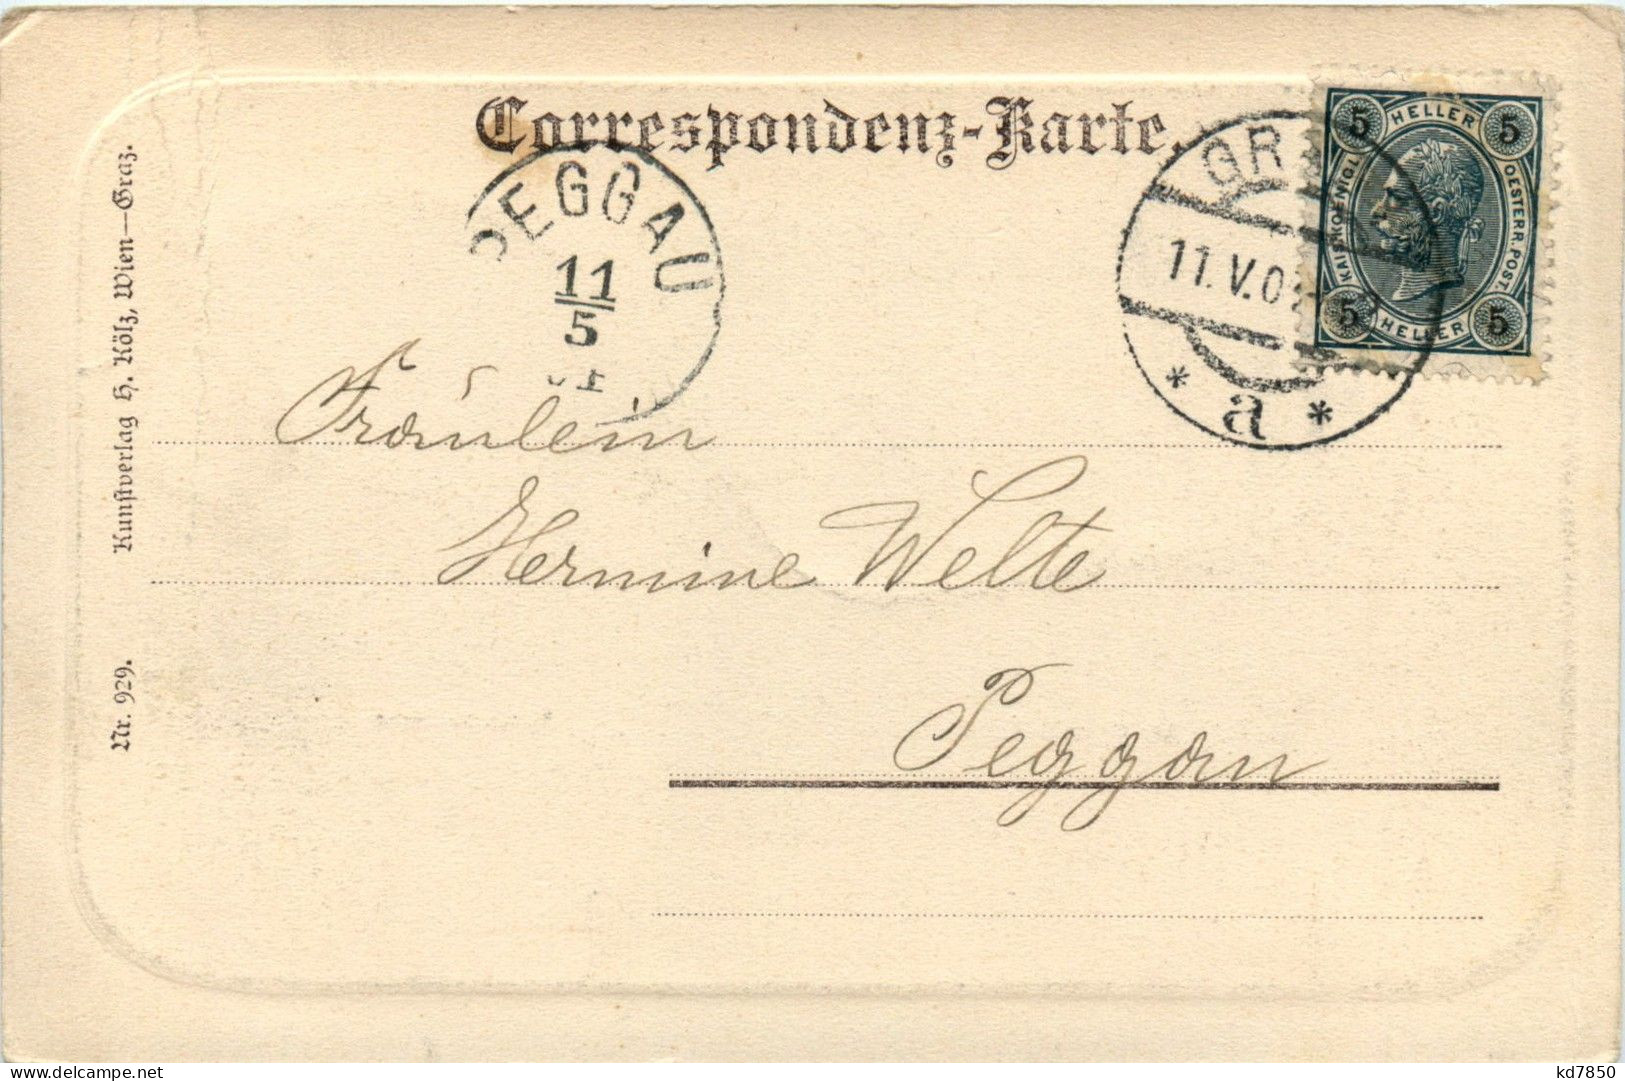 Correspondenz-Karte.
PEGGAU
11
5
GR
11.V.0
* a *
5 HELLER 5
KAIS. KOENIGL.
OESTERR. POST.
5 HELLER 5
Fräulein
Hermine Welte
Peggau
Nr. 929. Kunstverlag H. Kölz, Wien—Graz.
delcampe.net
kd7850